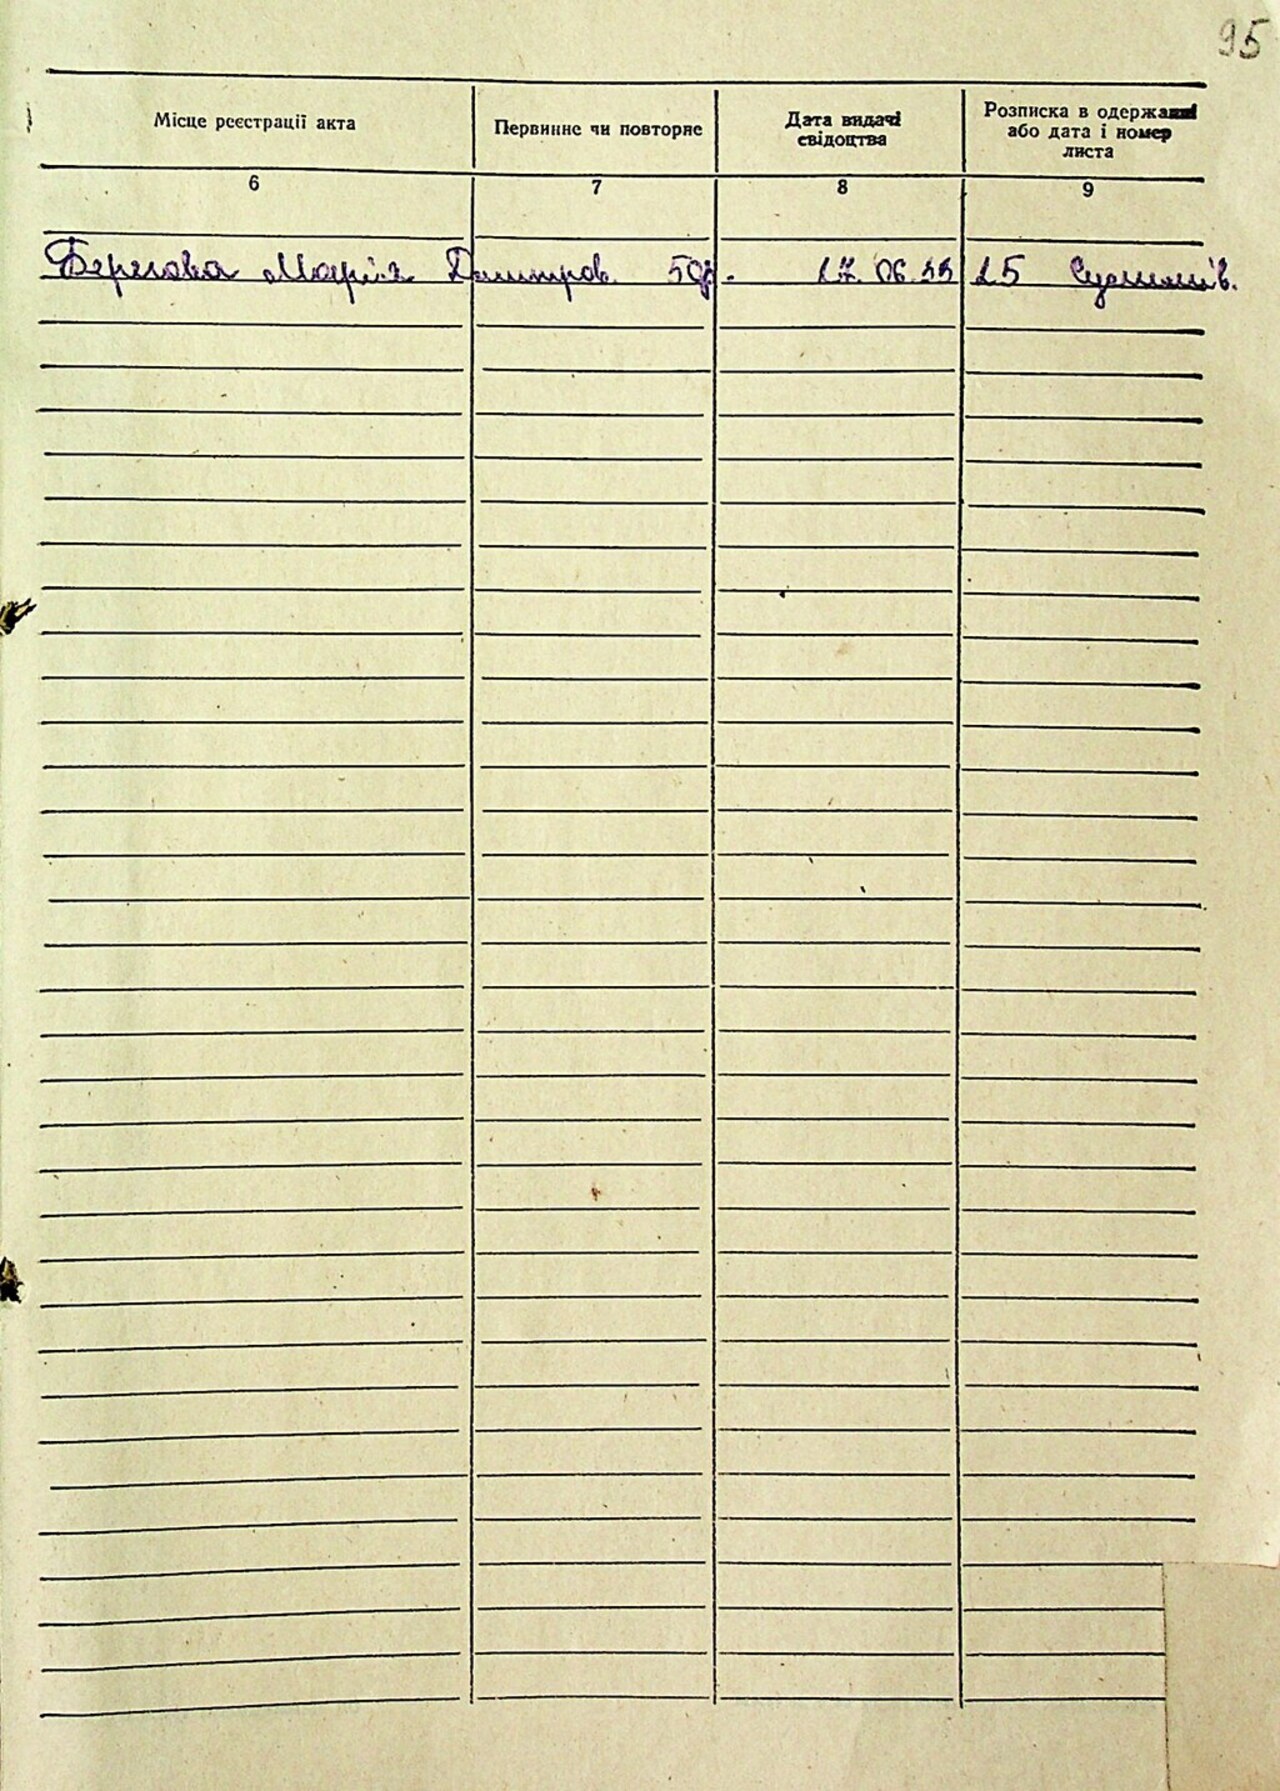 95
Місце реєстрації акта
Первинне чи повторне
Дата видачі
свідоцтва
Розписка в одержанні
або дата і номер
листа
6 7 8 9
Берегова Марія Дмитров. 50р. 17.06.99 15 Судимів.